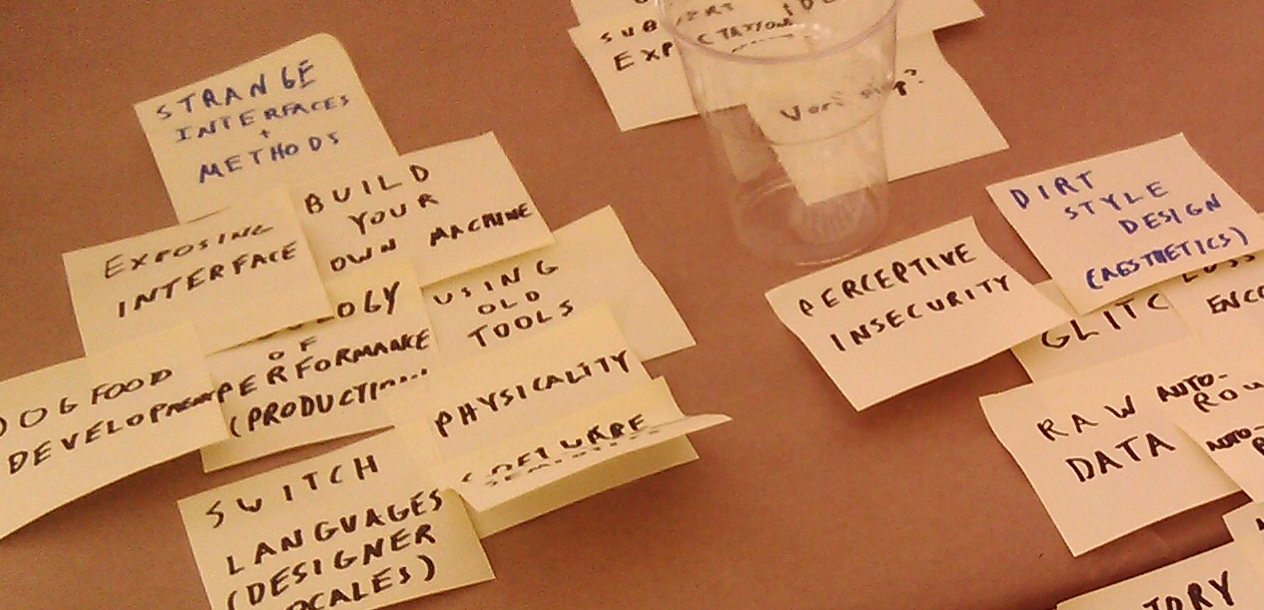 STRANGE
INTERFACES
+
METHODS
BUILD
YOUR
OWN MACHINE
EXPOSING
INTERFACE
USING
OLD
TOOLS
OLOGY
OF
PERFORMANCE
(PRODUCTION...
DOGFOOD
DEVELOPMENT
PHYSICALITY
SOFTWARE
SWITCH
LANGUAGES
(DESIGNER
LOCALES)
SUBVERT
EXPECTATIONS
PERCEPTIVE
INSECURITY
DIRT
STYLE
DESIGN
(AESTHETICS)
GLITC
ENCO
RAW
DATA
AUTO-
ROU
AUTO-
TORY